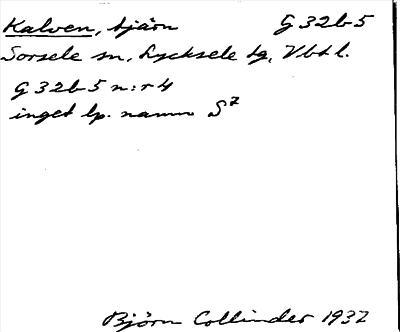 Kalven, tjärn G 32b5
Sorsele sn, Lycksele tg, Vbtl.
G 32b5 n:r 4
inget lp. namn S7
Björn Collinder 1932